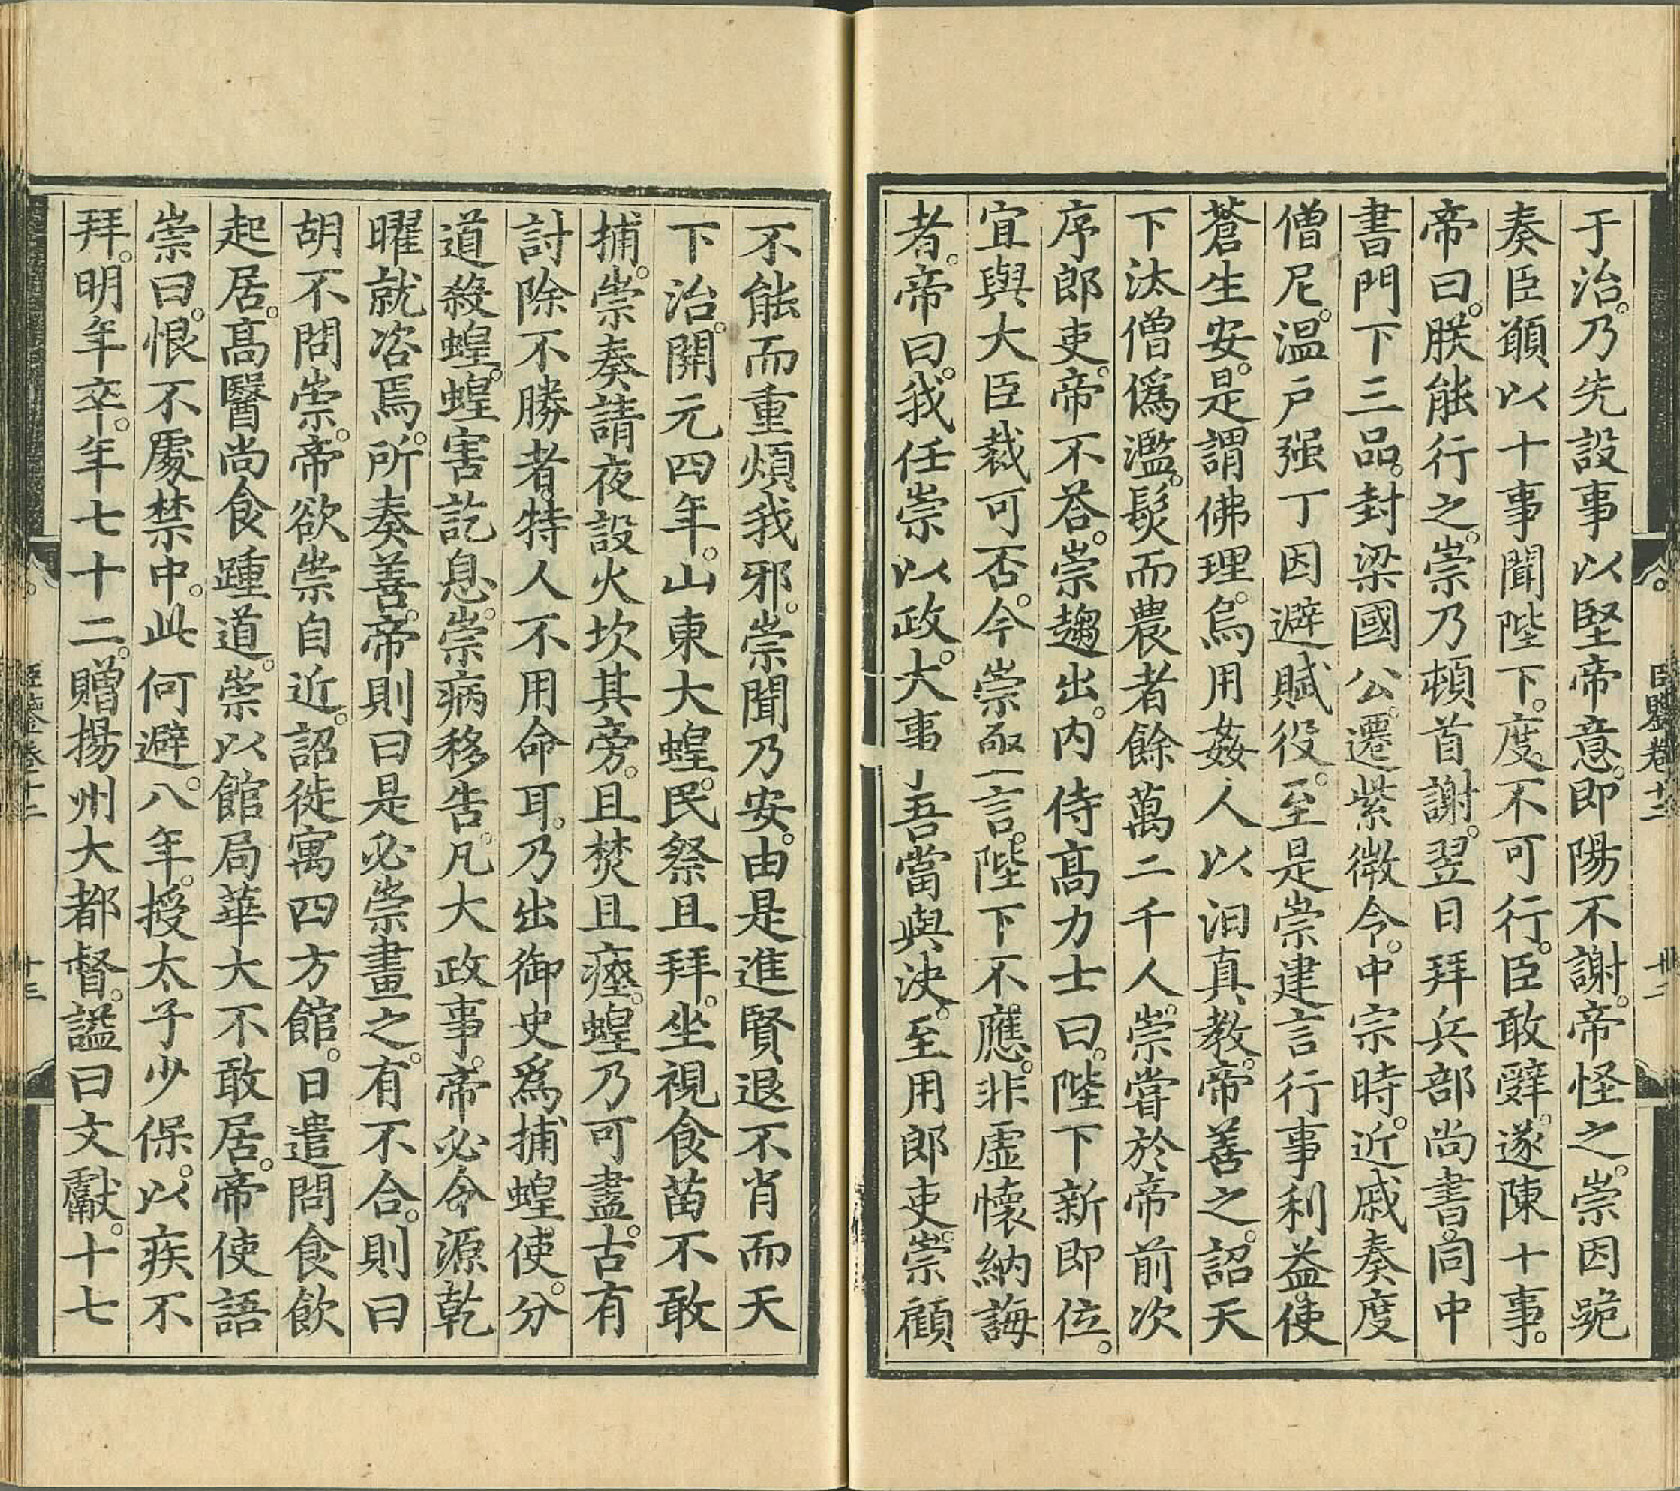 于治。乃先設事以堅帝意。即陽不謝。帝怪之。崇因跪
奏臣願以十事聞陛下。度不可行。臣敢辭。遂陳十事。
帝曰。朕能行之。崇乃頓首謝。翌日拜兵部尚書。同中
書門下三品。封梁國公。遷紫微令。中宗時。近戚奏度
僧尼。溫戶强丁因避賦役。至是崇建言行事利益。使
蒼生安。是謂佛理。烏用姦人以汩真教。帝善之。詔天
下汰僧偽濫。髮而農者餘萬二千人。崇嘗於帝前次
序郎吏。帝不荅。崇趨出。内侍高力士曰。陛下新即位。
宜與大臣裁可否。今崇亟言。陛下不應。非虛懷納誨
者。帝曰。我任崇以政。大事吾當與決。至用郎吏。崇顧
不能而重煩我邪。崇聞乃安。由是進賢退不肖而天
下治。開元四年。山東大蝗。民祭且拜。坐視食苗不敢
捕。崇奏請夜設火坎其旁。且焚且瘞。蝗乃可盡。古有
討除不勝者。特人不用命耳。乃出御史爲捕蝗使。分
道殺蝗。蝗害訖息。崇病移告。凡大政事。帝必令源乾
曜就咨焉。所奏善。帝則曰是必崇畫之。有不合。則曰
胡不問崇。帝欲崇自近。詔徙寓四方館。日遣問食飲
起居。高醫尚食踵道。崇以館局華大不敢居。帝使語
崇曰。恨不處禁中。此何避。八年。授太子少保。以疾不
拜。明年卒。年七十二。贈揚州大都督。謚曰文獻。十七